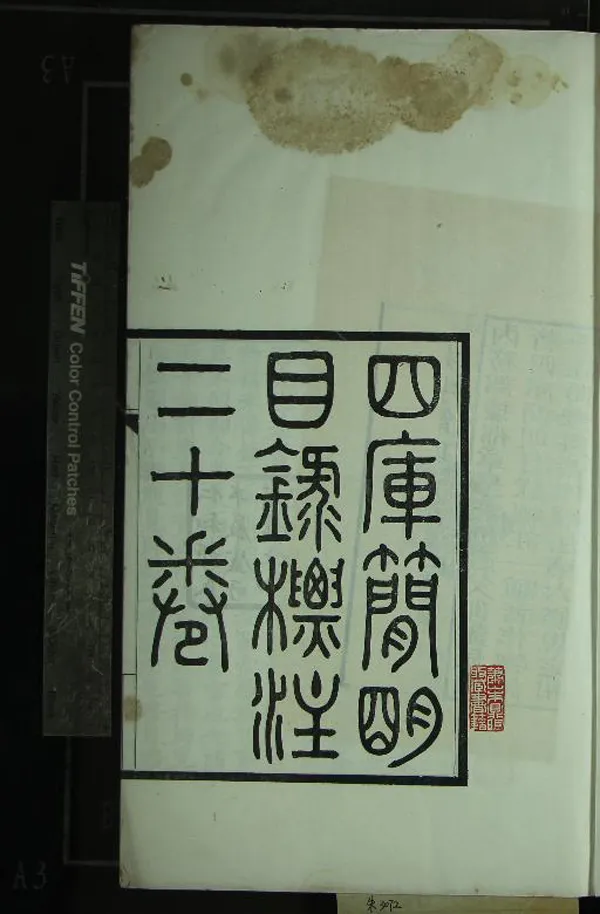 四庫簡明
目錄標注
二十卷
TIFFEN Color Control Patches
A3
A3